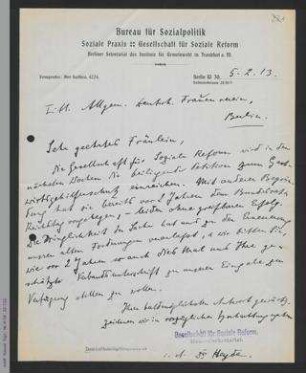 Bureau für Sozialpolitik
Soziale Praxis :: Gesellschaft für Soziale Reform
Berliner Sekretariat des Instituts für Gemeinwohl in Frankfurt a. M.
Berlin W. 30,
5. 2. 13.
Allgem. Deutsch. Frauenverein,
Berlin.
Sehr geehrtes Fräulein,
Die Gesellschaft für Soziale Reform wird in den
nächsten Wochen die beiliegende Petition zum Gast-
wirtsgehilfenschutz einreichen. Mit anderer Begrün-
dung hat sie bereits vor 2 Jahren dem Bundesrat
Reichstag vorgelegen, leider ohne greifbaren Erfolg.
Die Dringlichkeit der Sache hat uns zu der Erneuerung
unserer alten Forderungen veranlasst, u. wir bitten Sie,
wie vor 2 Jahren so auch diesmal uns Ihre ge-
schätzte Verbandsunterschrift zu unserer Eingabe zur
Verfügung stellen zu wollen.
Ihrer baldmöglichsten Antwort gewärtig,
zeichnen wir in vorzüglicher Hochachtung
Gesellschaft für Soziale Reform.
i. A. Dr Heyde